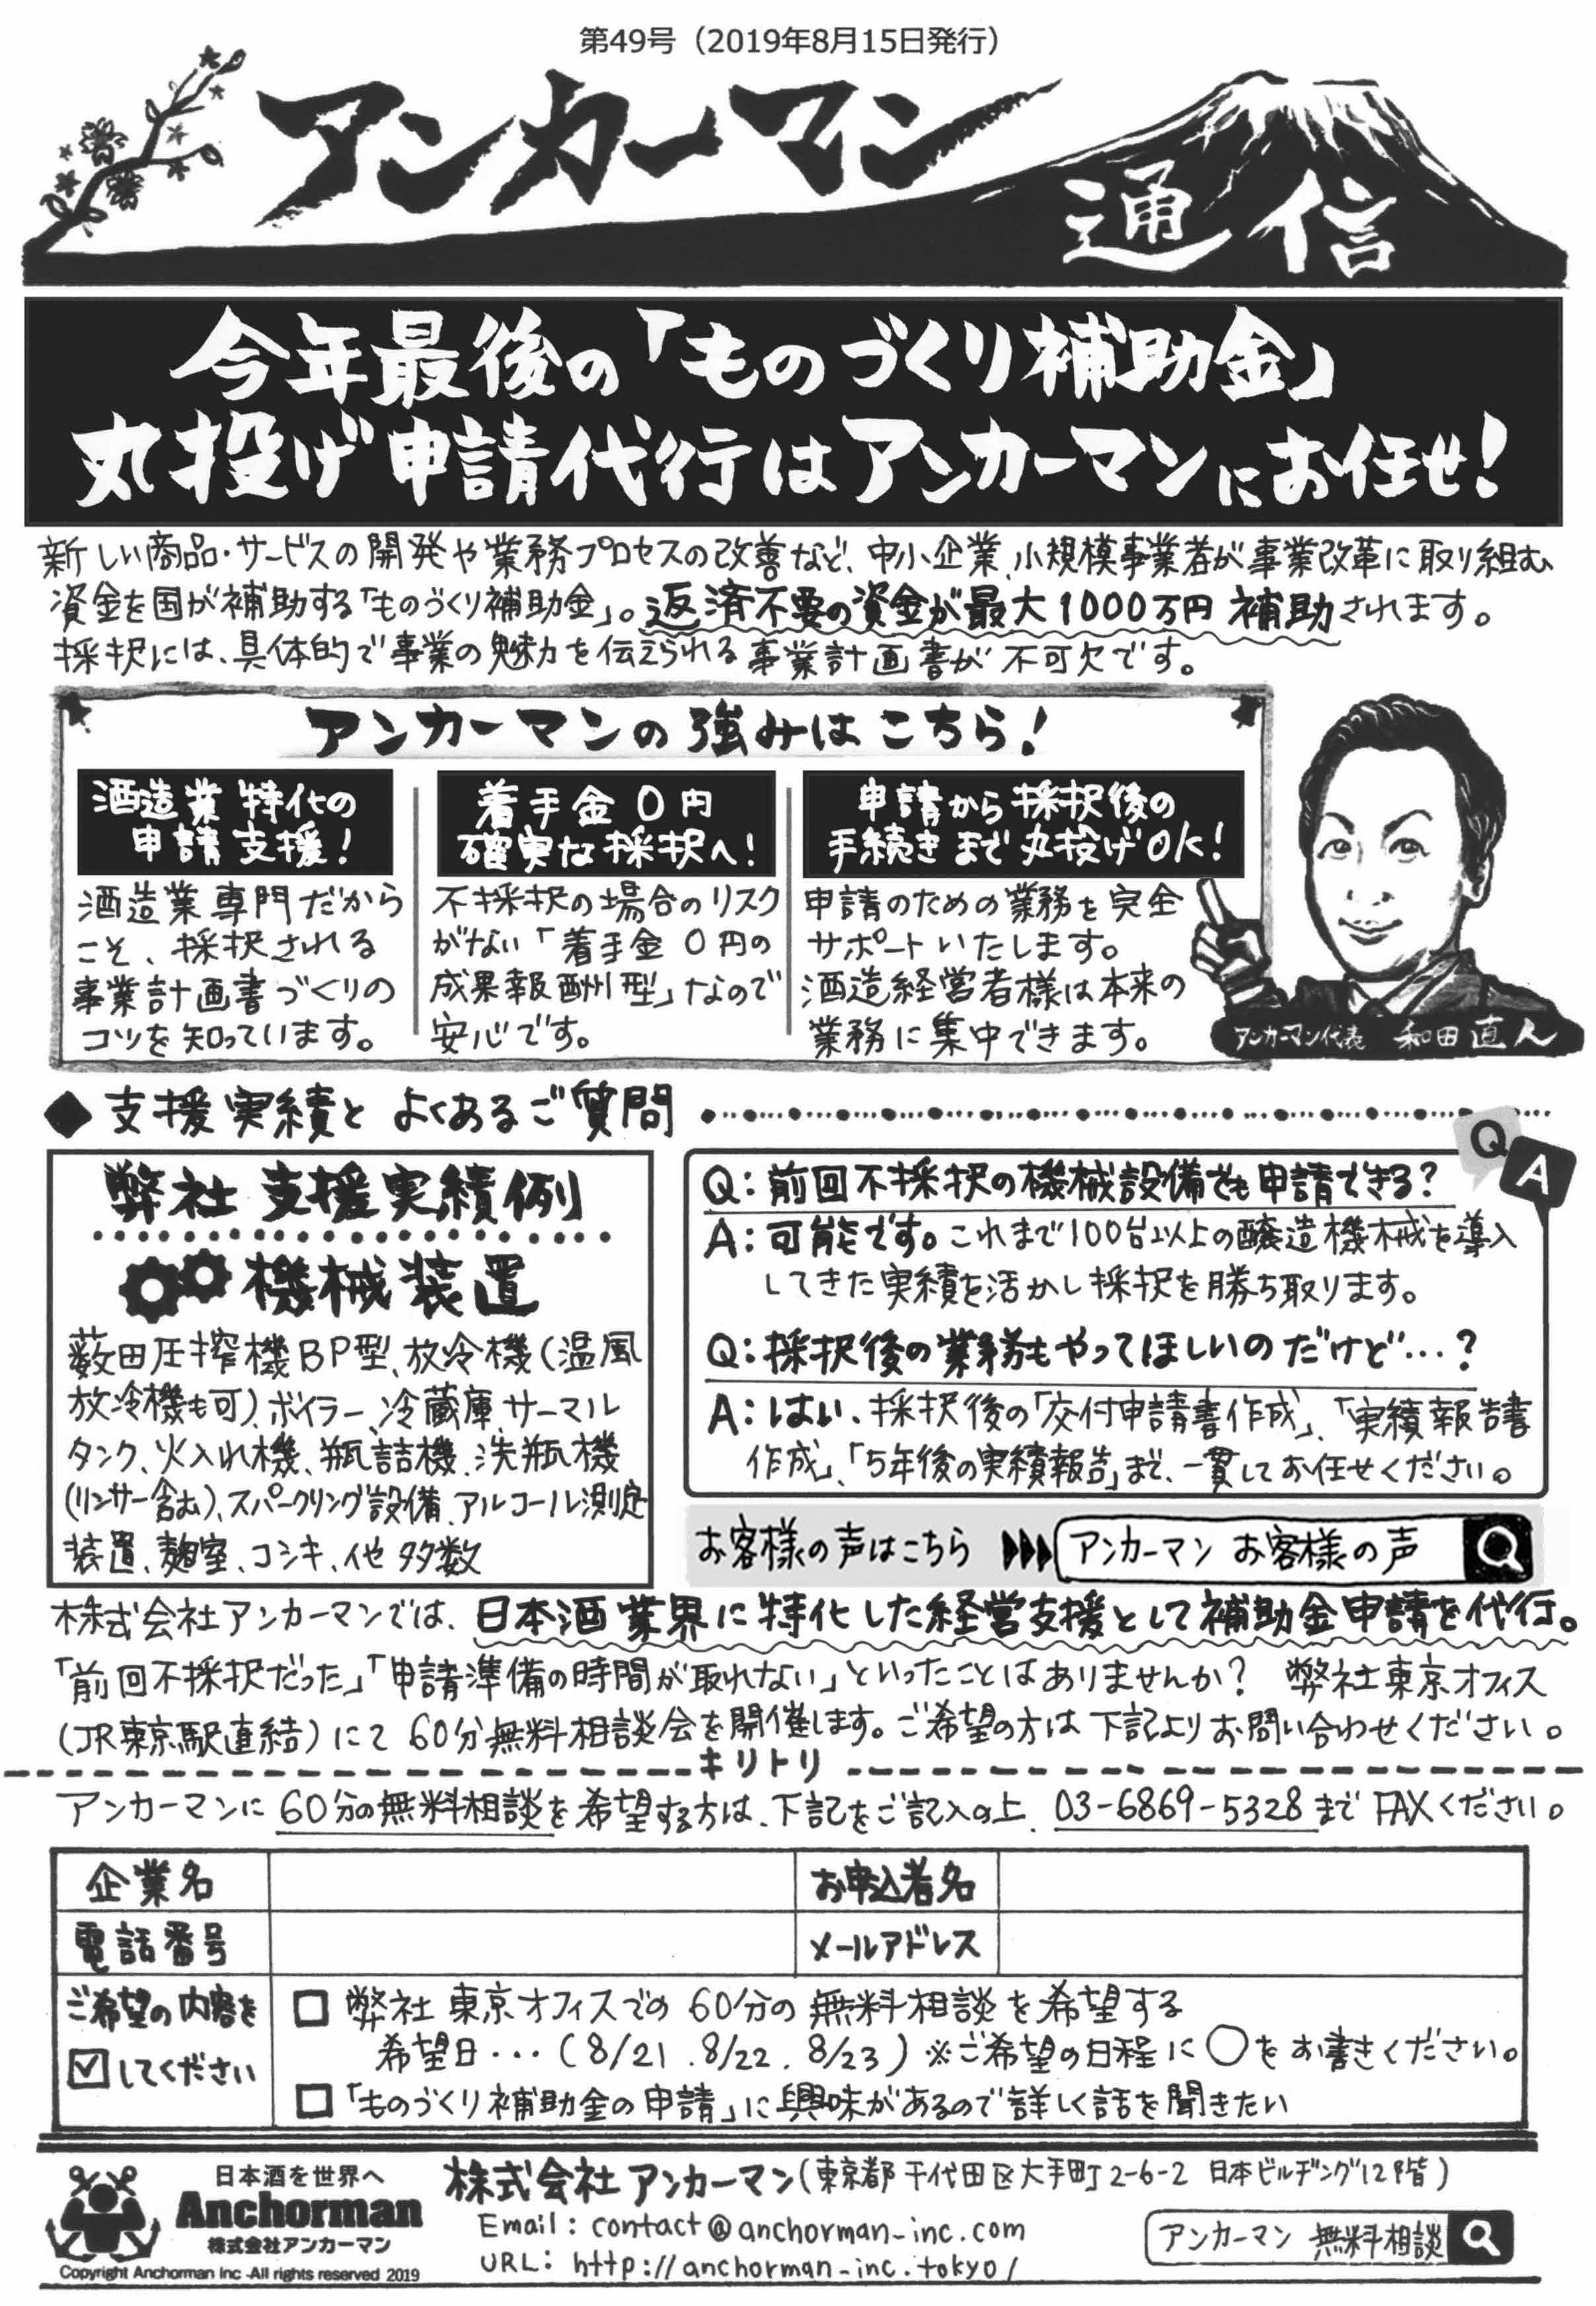 第49号（2019年8月15日発行）
アンカーマン
通信
今年最後の「ものづくり補助金」
丸投げ申請代行はアンカーマンにお任せ！
新しい商品・サービスの開発や業務プロセスの改善など、中小企業、小規模事業者が事業改革に取り組む
資金を国が補助する「ものづくり補助金」。返済不要の資金が最大1000万円補助されます。
採択には、具体的で事業の魅力を伝えられる事業計画書が不可欠です。
アンカーマンの強みはこちら！
酒造業特化の
申請支援！
酒造業専門だから
こそ、採択される
事業計画書づくりの
コツを知っています。
着手金0円
確実な採択へ！
不採択の場合のリスク
がない「着手金0円の
成果報酬型」なので
安心です。
申請から採択後の
手続きまで丸投げOK！
申請のための業務を完全
サポートいたします。
酒造経営者様は本来の
業務に集中できます。
アンカーマン代表 和田直人
◆支援実績とよくあるご質問
弊社支援実績例
機械装置
薮田圧搾機BP型、放冷機（温風
放冷機も可）、ボイラー、冷蔵庫、サーマル
タンク、火入れ機、瓶詰機、洗瓶機
（リンサー含む）、スパークリング設備、アルコール測定
装置、麹室、コシキ、他多数
Q
A
Q：前回不採択の機械設備でも申請できる？
A：可能です。これまで100台以上の醸造機械を導入
してきた実績を活かし採択を勝ち取ります。
Q：採択後の業務もやってほしいのだけど…？
A：はい、採択後の「交付申請書作成」、「実績報告書
作成」、「5年後の実績報告」まで、一貫してお任せください。
お客様の声はこちら
アンカーマン お客様の声
株式会社アンカーマンでは、日本酒業界に特化した経営支援として補助金申請を代行。
「前回不採択だった」「申請準備の時間が取れない」といったことはありませんか？ 弊社東京オフィス
（JR東京駅直結）にて60分無料相談会を開催します。ご希望の方は下記よりお問い合わせください。
キリトリ
アンカーマンに60分の無料相談を希望する方は、下記をご記入の上、03-6869-5328までFAXください。
企業名
お申込者名
電話番号
メールアドレス
ご希望の内容を
☑してください
□ 弊社東京オフィスでの60分の無料相談を希望する
希望日…（8/21、8/22、8/23）※ご希望の日程に〇をお書きください。
□「ものづくり補助金の申請」に興味があるので詳しく話を聞きたい
日本酒を世界へ
Anchorman
株式会社アンカーマン
Copyright Anchorman Inc -All rights reserved 2019
株式会社アンカーマン（東京都千代田区大手町2-6-2 日本ビルヂング12階）
Email：contact@anchorman-inc.com
URL：http://anchorman-inc.tokyo/
アンカーマン 無料相談